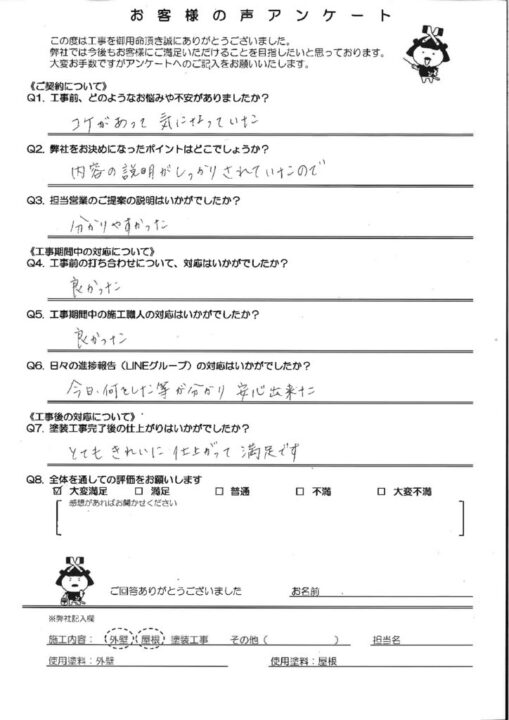 お客様の声アンケート
この度は工事を御用命頂き誠にありがとうございました。
弊社では今後もお客様にご満足いただけることを目指したいと思っております。
大変お手数ですがアンケートへのご記入をお願いいたします。
《ご契約について》
Q1. 工事前、どのようなお悩みや不安がありましたか?
コケがあって 気になっていた
Q2. 弊社をお決めになったポイントはどこでしょうか?
内容の説明がしっかりされていたので
Q3. 担当営業のご提案の説明はいかがでしたか?
分かりやすかった
《工事期間中の対応について》
Q4. 工事前の打ち合わせについて、対応はいかがでしたか?
良かった
Q5. 工事期間中の施工職人の対応はいかがでしたか?
良かった
Q6. 日々の進捗報告(LINEグループ)の対応はいかがでしたか?
今日、何をした等が分かり 安心出来た
《工事後の対応について》
Q7. 塗装工事完了後の仕上がりはいかがでしたか?
とても きれいに 仕上がって 満足です
Q8. 全体を通しての評価をお願いします
☑ 大変満足 □ 満足 □ 普通 □ 不満 □ 大変不満
感想があればお聞かせください
ご回答ありがとうございました お名前
※弊社記入欄
施工内容: 外壁 / 屋根 塗装工事 その他 ( ) 担当名
使用塗料:外壁 使用塗料:屋根